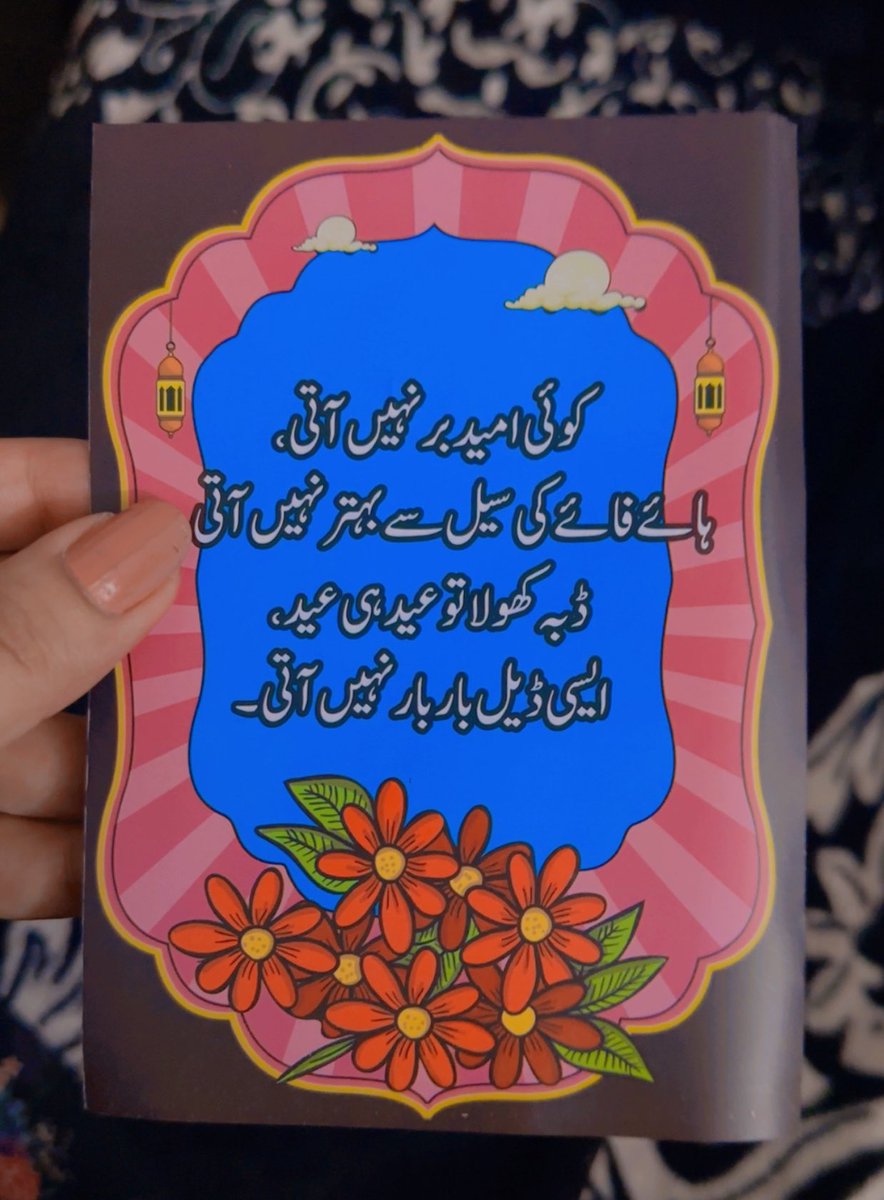 کوئی امید بر نہیں آتی،
ہائے فائے کی سیل سے بہتر نہیں آتی
ڈبہ کھولا تو عید ہی عید،
ایسی ڈیل بار بار نہیں آتی۔